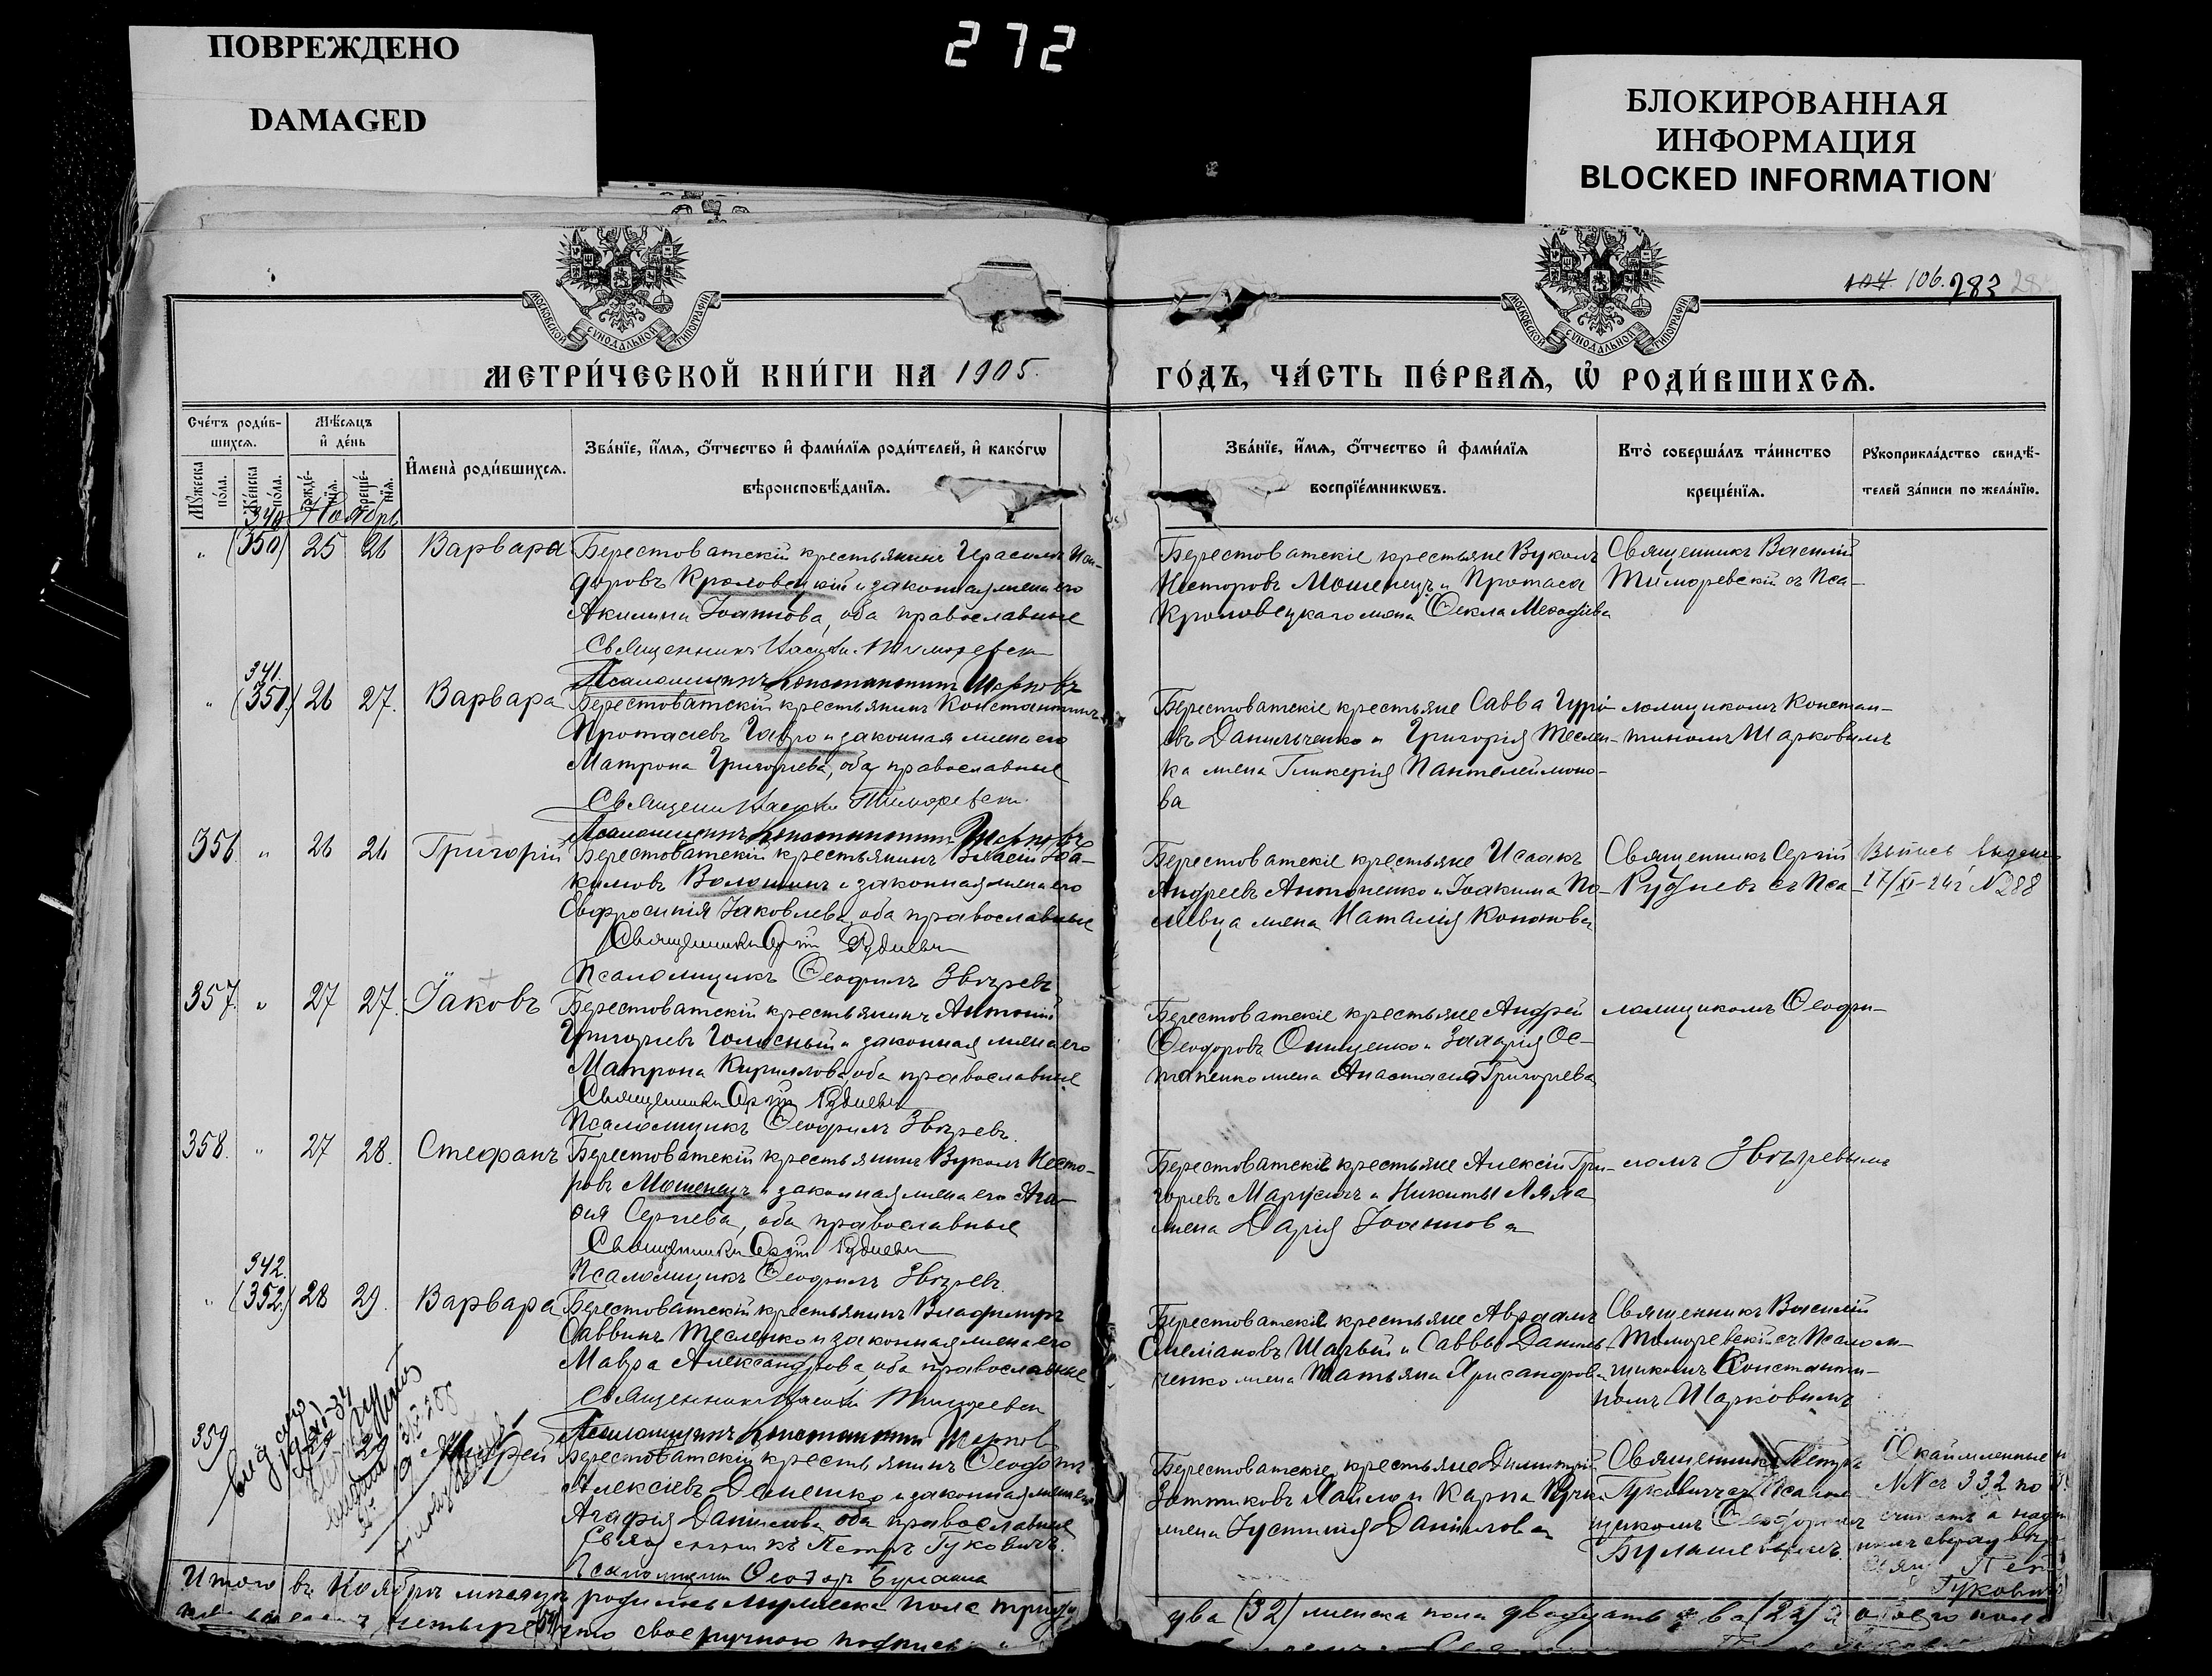 ПОВРЕЖДЕНО
DAMAGED
272
БЛОКИРОВАННАЯ
ИНФОРМАЦИЯ
BLOCKED INFORMATION
МОСКОВСКОЙ СѴНОДАЛЬНОЙ ТИПОГРАФІИ
МОСКОВСКОЙ СѴНОДАЛЬНОЙ ТИПОГРАФІИ
104 106. 283
МЕТРИ́ЧЕСКОЙ КНИ́ГИ НА 1905.
ГО́ДЪ, ЧА́СТЬ ПЕ́РВАѦ, Ѡ҆ РОДИ́ВШИХСѦ.
Сче́тъ роди́в-
шихсѧ.
Мꙋ́жеска по́ла.
Же́нска по́ла.
Мѣ́сѧцъ
и҆ де́нь
рожде́-нїѧ.
креще́-нїѧ.
И҆мена̀ роди́вшихсѧ.
Зва́нїе, и҆́мѧ, ѻ҆́тчество и҆ фами́лїѧ роди́телей, и҆ како́гѡ
вѣроисповѣ́данїѧ.
Зва́нїе, и҆́мѧ, ѻ҆́тчество и҆ фами́лїѧ
воспрїе́мникѡвъ.
Кто̀ соверша́лъ та́инство
креще́нїѧ.
Рꙋкоприкла́дство свидѣ́-
телей за́писи по жела́нїю.
Ноябрь
340
" (350) 25 26 Варвара
Берестоватскій крестьянинъ Герасимъ Иси-
доровъ Кроловецкій и законная жена его
Акилина Іоаннова, оба православные
Священникъ Василій Тиморевскій
Псаломщикъ Константинъ Шарковъ
Берестоватскіе крестьяне Вуколъ
Несторовъ Мошенецъ и Протасія
Кроловецкаго жена Ѳекла Меѳодіева
Священникъ Василій
Тиморевскій съ Пса-
341.
" (351) 26 27. Варвара
Берестоватскій крестьянинъ Константинъ
Протасіевъ Гавро и законная жена его
Матрона Григоріева, оба православные
Священникъ Василій Тиморевскій
Псаломщикъ Константинъ Шарковъ
Берестоватскіе крестьяне Савва Гурі-
евъ Данильченко и Григорія Теслен-
ка жена Гликерія Пантелеймоно-
ва
ломщикомъ Констан-
тиномъ Шарковымъ
356 " 26 26 Григорій
Берестоватскій крестьянинъ Власій Іоа-
кимовъ Волошинъ и законная жена его
Евфросинія Іаковлева, оба православные
Священникъ Сергій Рудневъ
Псаломщикъ Ѳеофилъ Звѣревъ
Берестоватскіе крестьяне Исаакъ
Андреевъ Антоненко и Іоакима По-
жена Наталія Кононова
Священникъ Сергій
Рудневъ съ Пса-
Выпись выдана
17/XI-24г №288
357. " 27 27. Іаковъ
Берестоватскій крестьянинъ Антоній
Григорьевъ Голосный и законная жена его
Матрона Кириллова, оба православные
Священникъ Сергій Рудневъ
Псаломщикъ Ѳеофилъ Звѣревъ.
Берестоватскіе крестьяне Андрей
Ѳеодоровъ Онищенко и Захарія Ос-
тапенко жена Анастасія Григорьева
ломщикомъ Ѳеофи-
358. " 27 28. Стефанъ
Берестоватскій крестьянинъ Вуколъ Несто-
ровъ Мошенецъ и законная жена его Ага-
фія Сергіева, оба православные
Священникъ Сергій Рудневъ
Псаломщикъ Ѳеофилъ Звѣревъ.
Берестоватскіе крестьяне Алексій Гри-
горьевъ Марусичъ и Никиты Ляха
жена Дарія Іоаннова
ломъ Звѣревымъ
342.
" (352.) 28 29. Варвара
Берестоватскій крестьянинъ Владиміръ
Саввинъ Тесленко и законная жена его
Мавра Александрова, оба православные
Священникъ Василій Тиморевскій
Псаломщикъ Константинъ Шарковъ
Берестоватскіе крестьяне Авраамъ
Емеліановъ Шарый и Саввы Даниль-
ченко жена Татьяна Хрисанфова
Священникъ Василій
Тиморевскій съ Псалом-
щикомъ Константи-
номъ Шарковымъ
359 29 Андрей
Берестоватскій крестьянинъ Ѳеодотъ
Алексіевъ Демешко и законная жена его
Агафія Данилова, оба православные
Священникъ Петръ Гуковичъ.
Псаломщикъ Ѳеодоръ
Берестоватскіе крестьяне Димитрій
и Карпа
жена Іустинія Данилова
Священникъ Петръ
Гуковичъ съ Псалом-
щикомъ Ѳеодоромъ
№№ съ 332 по
считать а
Гуковичъ
Итого въ Ноябрѣ мѣсяцѣ родилось мужеска пола тридцать
два (32) женска пола двадцать два (22) а обоего пола
четыре (54) что своеручною подписью